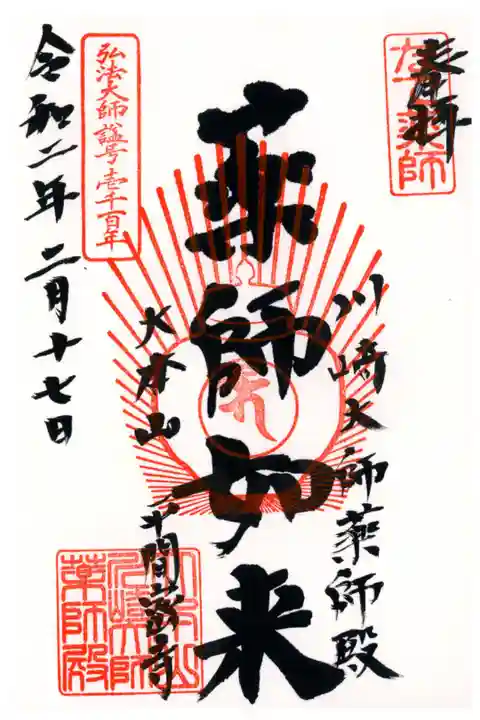 奉拝
川崎大師薬師殿
薬師如来
大本山
平間寺
弘法大師諡号壱千百年
令和二年二月十七日
薬師殿